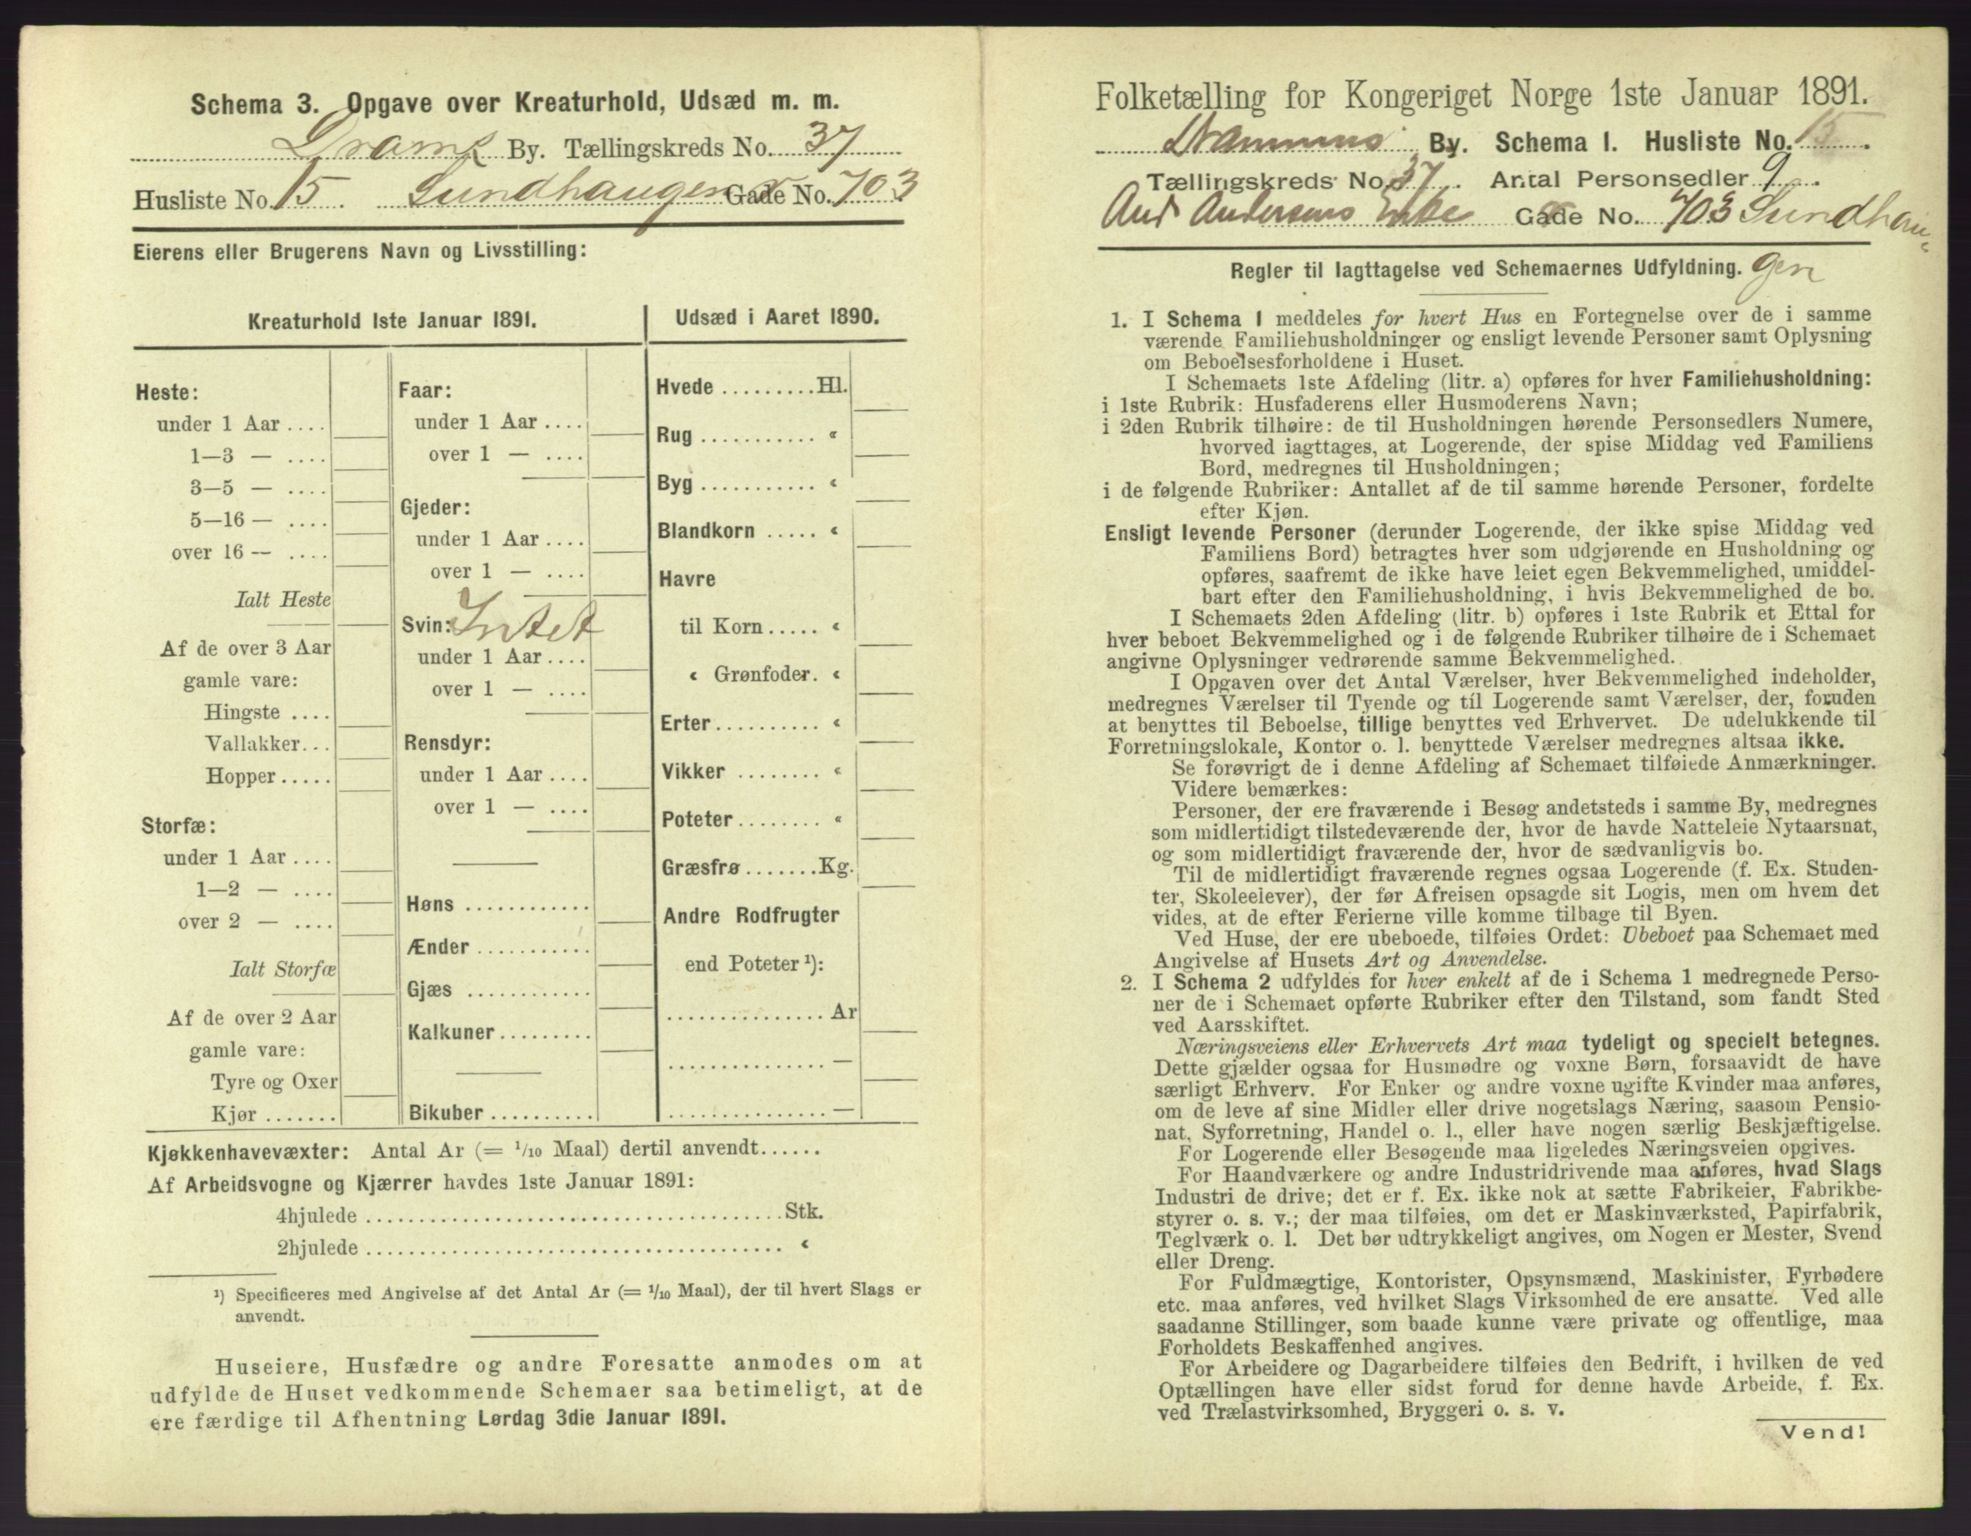 Schema 3. Opgave over Kreaturhold, Udsæd m. m.
Dramn By. Tællingskreds No. 37
Husliste No. 15. Sundhaugen Gade No. 703
Eierens eller Brugerens Navn og Livsstilling:
Kreaturhold 1ste Januar 1891.
Heste:
under 1 Aar ....
1—3 — ....
3—5 — ....
5—16 — ....
over 16 — ....
Ialt Heste
Af de over 3 Aar
gamle vare:
Hingste ....
Vallakker...
Hopper.....
Storfæ:
under 1 Aar ....
1—2 — ....
over 2 — ....
Ialt Storfæ
Af de over 2 Aar
gamle vare:
Tyre og Oxer
Kjør .......
Faar:
under 1 Aar ....
over 1 — ....
Gjeder:
under 1 Aar ....
over 1 — ....
Svin: Intet
under 1 Aar ....
over 1 — ....
Rensdyr:
under 1 Aar ....
over 1 — ....
Høns ............
Ænder ...........
Gjæs ............
Kalkuner .........
Bikuber ..........
Udsæd i Aaret 1890.
Hvede .........Hl.
Rug ........... «
Byg ........... «
Blandkorn ..... «
Havre
til Korn..... «
« Grønfoder. «
Erter.......... «
Vikker ........ «
Poteter........ «
Græsfrø.......Kg.
Andre Rodfrugter
end Poteter ¹):
............... Ar
............... —
............... —
Kjøkkenhavevæxter: Antal Ar (= 1/10 Maal) dertil anvendt......
Af Arbeidsvogne og Kjærrer havdes 1ste Januar 1891:
4hjulede ........................................Stk.
2hjulede ........................................ «
¹) Specificeres med Angivelse af det Antal Ar (= 1/10 Maal), der til hvert Slags er
anvendt.
Huseiere, Husfædre og andre Foresatte anmodes om at
udfylde de Huset vedkommende Schemaer saa betimeligt, at de
ere færdige til Afhentning Lørdag 3die Januar 1891.
Folketælling for Kongeriget Norge 1ste Januar 1891.
Drammens By. Schema I. Husliste No. 15.
Tællingskreds No. 37. Antal Personsedler 9.
And Andersens Enke Gade No. 703 Sundhau-
gen
Regler til Iagttagelse ved Schemaernes Udfyldning.
1. I Schema 1 meddeles for hvert Hus en Fortegnelse over de i samme
værende Familiehusholdninger og ensligt levende Personer samt Oplysning
om Beboelsesforholdene i Huset.
I Schemaets 1ste Afdeling (litr. a) opføres for hver Familiehusholdning:
i 1ste Rubrik: Husfaderens eller Husmoderens Navn;
i 2den Rubrik tilhøire: de til Husholdningen hørende Personsedlers Numere,
hvorved iagttages, at Logerende, der spise Middag ved Familiens
Bord, medregnes til Husholdningen;
i de følgende Rubriker: Antallet af de til samme hørende Personer, fordelte
efter Kjøn.
Ensligt levende Personer (derunder Logerende, der ikke spise Middag ved
Familiens Bord) betragtes hver som udgjørende en Husholdning og
opføres, saafremt de ikke have leiet egen Bekvemmelighed, umiddel-
bart efter den Familiehusholdning, i hvis Bekvemmelighed de bo.
I Schemaets 2den Afdeling (litr. b) opføres i 1ste Rubrik et Ettal for
hver beboet Bekvemmelighed og i de følgende Rubriker tilhøire de i Schemaet
angivne Oplysninger vedrørende samme Bekvemmelighed.
I Opgaven over det Antal Værelser, hver Bekvemmelighed indeholder,
medregnes Værelser til Tyende og til Logerende samt Værelser, der, foruden
at benyttes til Beboelse, tillige benyttes ved Erhvervet. De udelukkende til
Forretningslokale, Kontor o. l. benyttede Værelser medregnes altsaa ikke.
Se forøvrigt de i denne Afdeling af Schemaet tilføiede Anmærkninger.
Videre bemærkes:
Personer, der ere fraværende i Besøg andetsteds i samme By, medregnes
som midlertidigt tilstedeværende der, hvor de havde Natteleie Nytaarsnat,
og som midlertidigt fraværende der, hvor de sædvanligvis bo.
Til de midlertidigt fraværende regnes ogsaa Logerende (f. Ex. Studen-
ter, Skoleelever), der før Afreisen opsagde sit Logis, men om hvem det
vides, at de efter Ferierne ville komme tilbage til Byen.
Ved Huse, der ere ubeboede, tilføies Ordet: Ubeboet paa Schemaet med
Angivelse af Husets Art og Anvendelse.
2. I Schema 2 udfyldes for hver enkelt af de i Schema 1 medregnede Perso-
ner de i Schemaet opførte Rubriker efter den Tilstand, som fandt Sted
ved Aarsskiftet.
Næringsveiens eller Erhvervets Art maa tydeligt og specielt betegnes.
Dette gjælder ogsaa for Husmødre og voxne Børn, forsaavidt de have
særligt Erhverv. For Enker og andre voxne ugifte Kvinder maa anføres,
om de leve af sine Midler eller drive nogetslags Næring, saasom Pensio-
nat, Syforretning, Handel o. l., eller have nogen særlig Beskjæftigelse.
For Logerende eller Besøgende maa ligeledes Næringsveien opgives.
For Haandværkere og andre Industridrivende maa anføres, hvad Slags
Industri de drive; det er f. Ex. ikke nok at sætte Fabrikeier, Fabrikbe-
styrer o. s. v.; der maa tilføies, om det er Maskinværksted, Papirfabrik,
Teglværk o. l. Det bør udtrykkeligt angives, om Nogen er Mester, Svend
eller Dreng.
For Fuldmægtige, Kontorister, Opsynsmænd, Maskinister, Fyrbødere
etc. maa anføres, ved hvilket Slags Virksomhed de ere ansatte. Ved alle
saadanne Stillinger, som baade kunne være private og offentlige, maa
Forholdets Beskaffenhed angives.
For Arbeidere og Dagarbeidere tilføies den Bedrift, i hvilken de ved
Optællingen have eller sidst forud for denne havde Arbeide, f. Ex.
ved Trælastvirksomhed, Bryggeri o. s. v.
Vend!